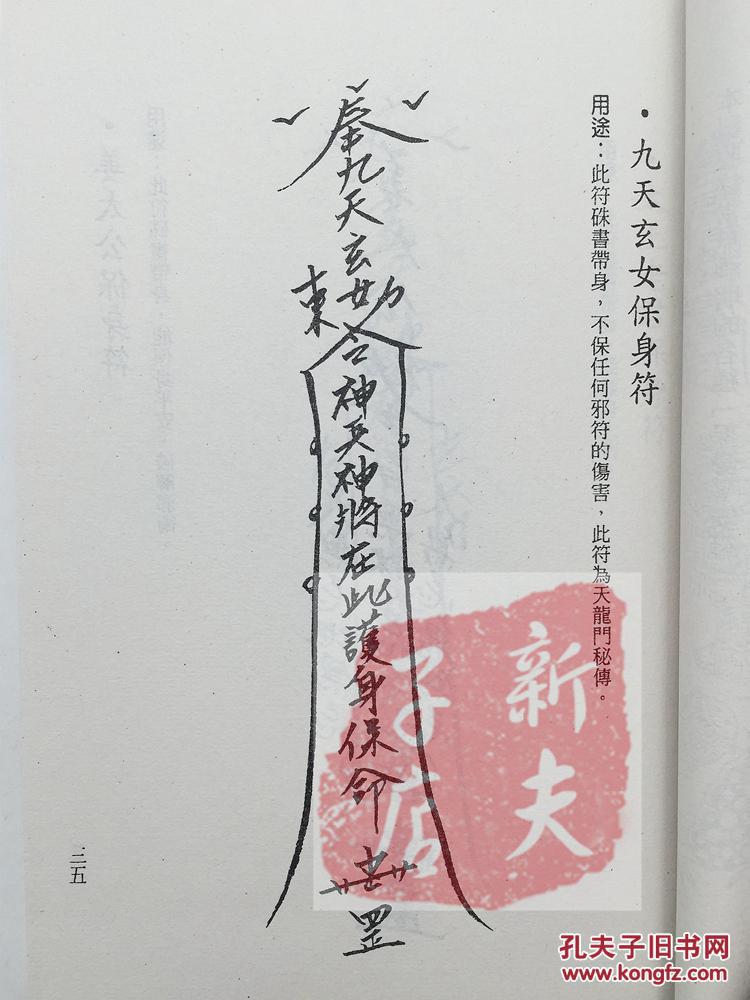 ·九天玄女保身符
用途：此符硃書帶身，不保任何邪符的傷害，此符為天龍門秘傳。
奉九天玄女
勅令神兵神將在此護身保命
罡
二五
新夫
子店
孔夫子旧书网
www.kongfz.com